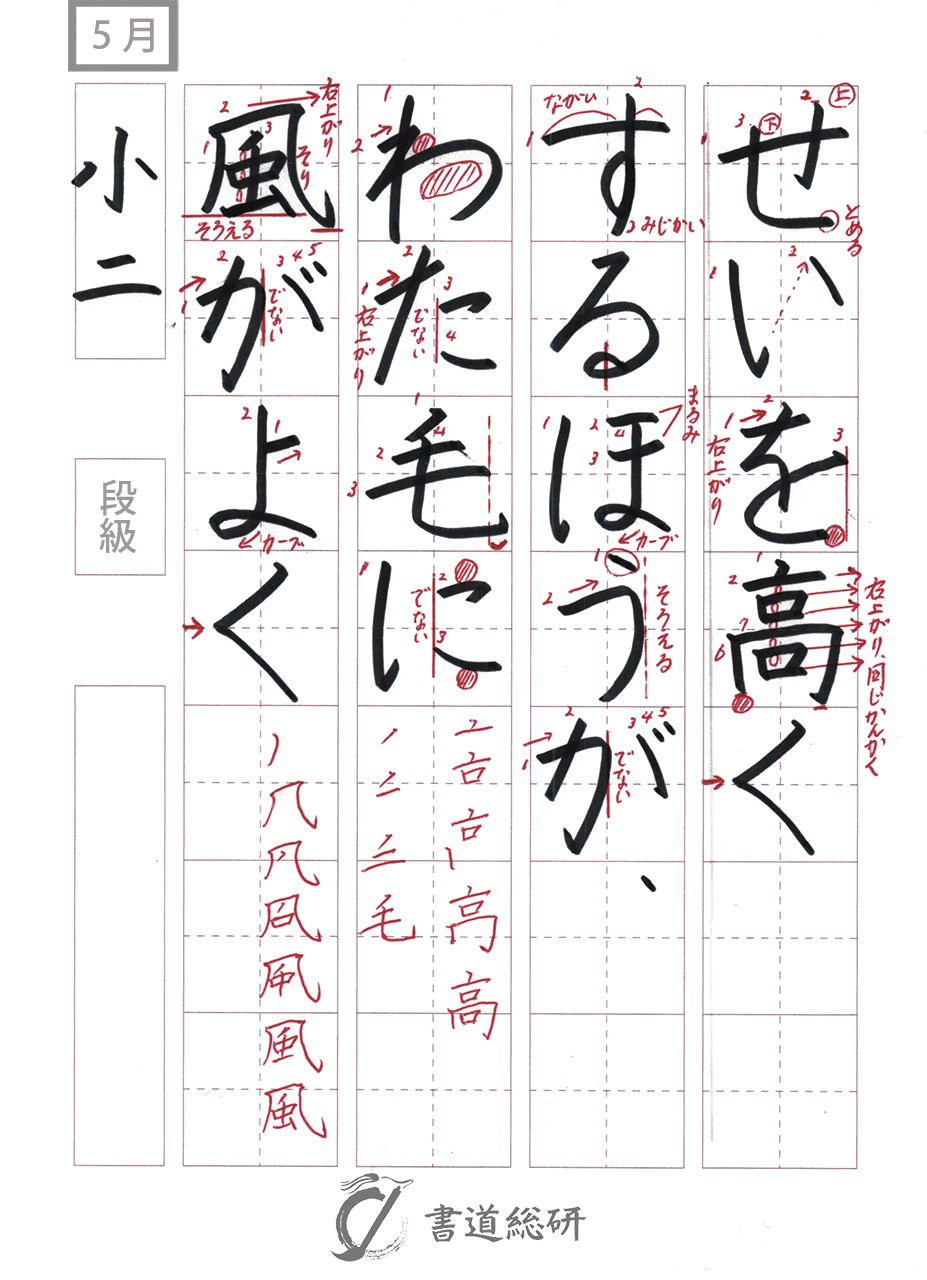 5月
せいを高く
するほうが、
わた毛に
風がよく
小二
段級
上
下
とめる
右上がり
右上がり、同じかんかく
ながい
みじかい
まるみ
カーブ
そろえる
でない
右上がり
でない
でない
右上がり
そり
そろえる
でない
カーブ
書道総研